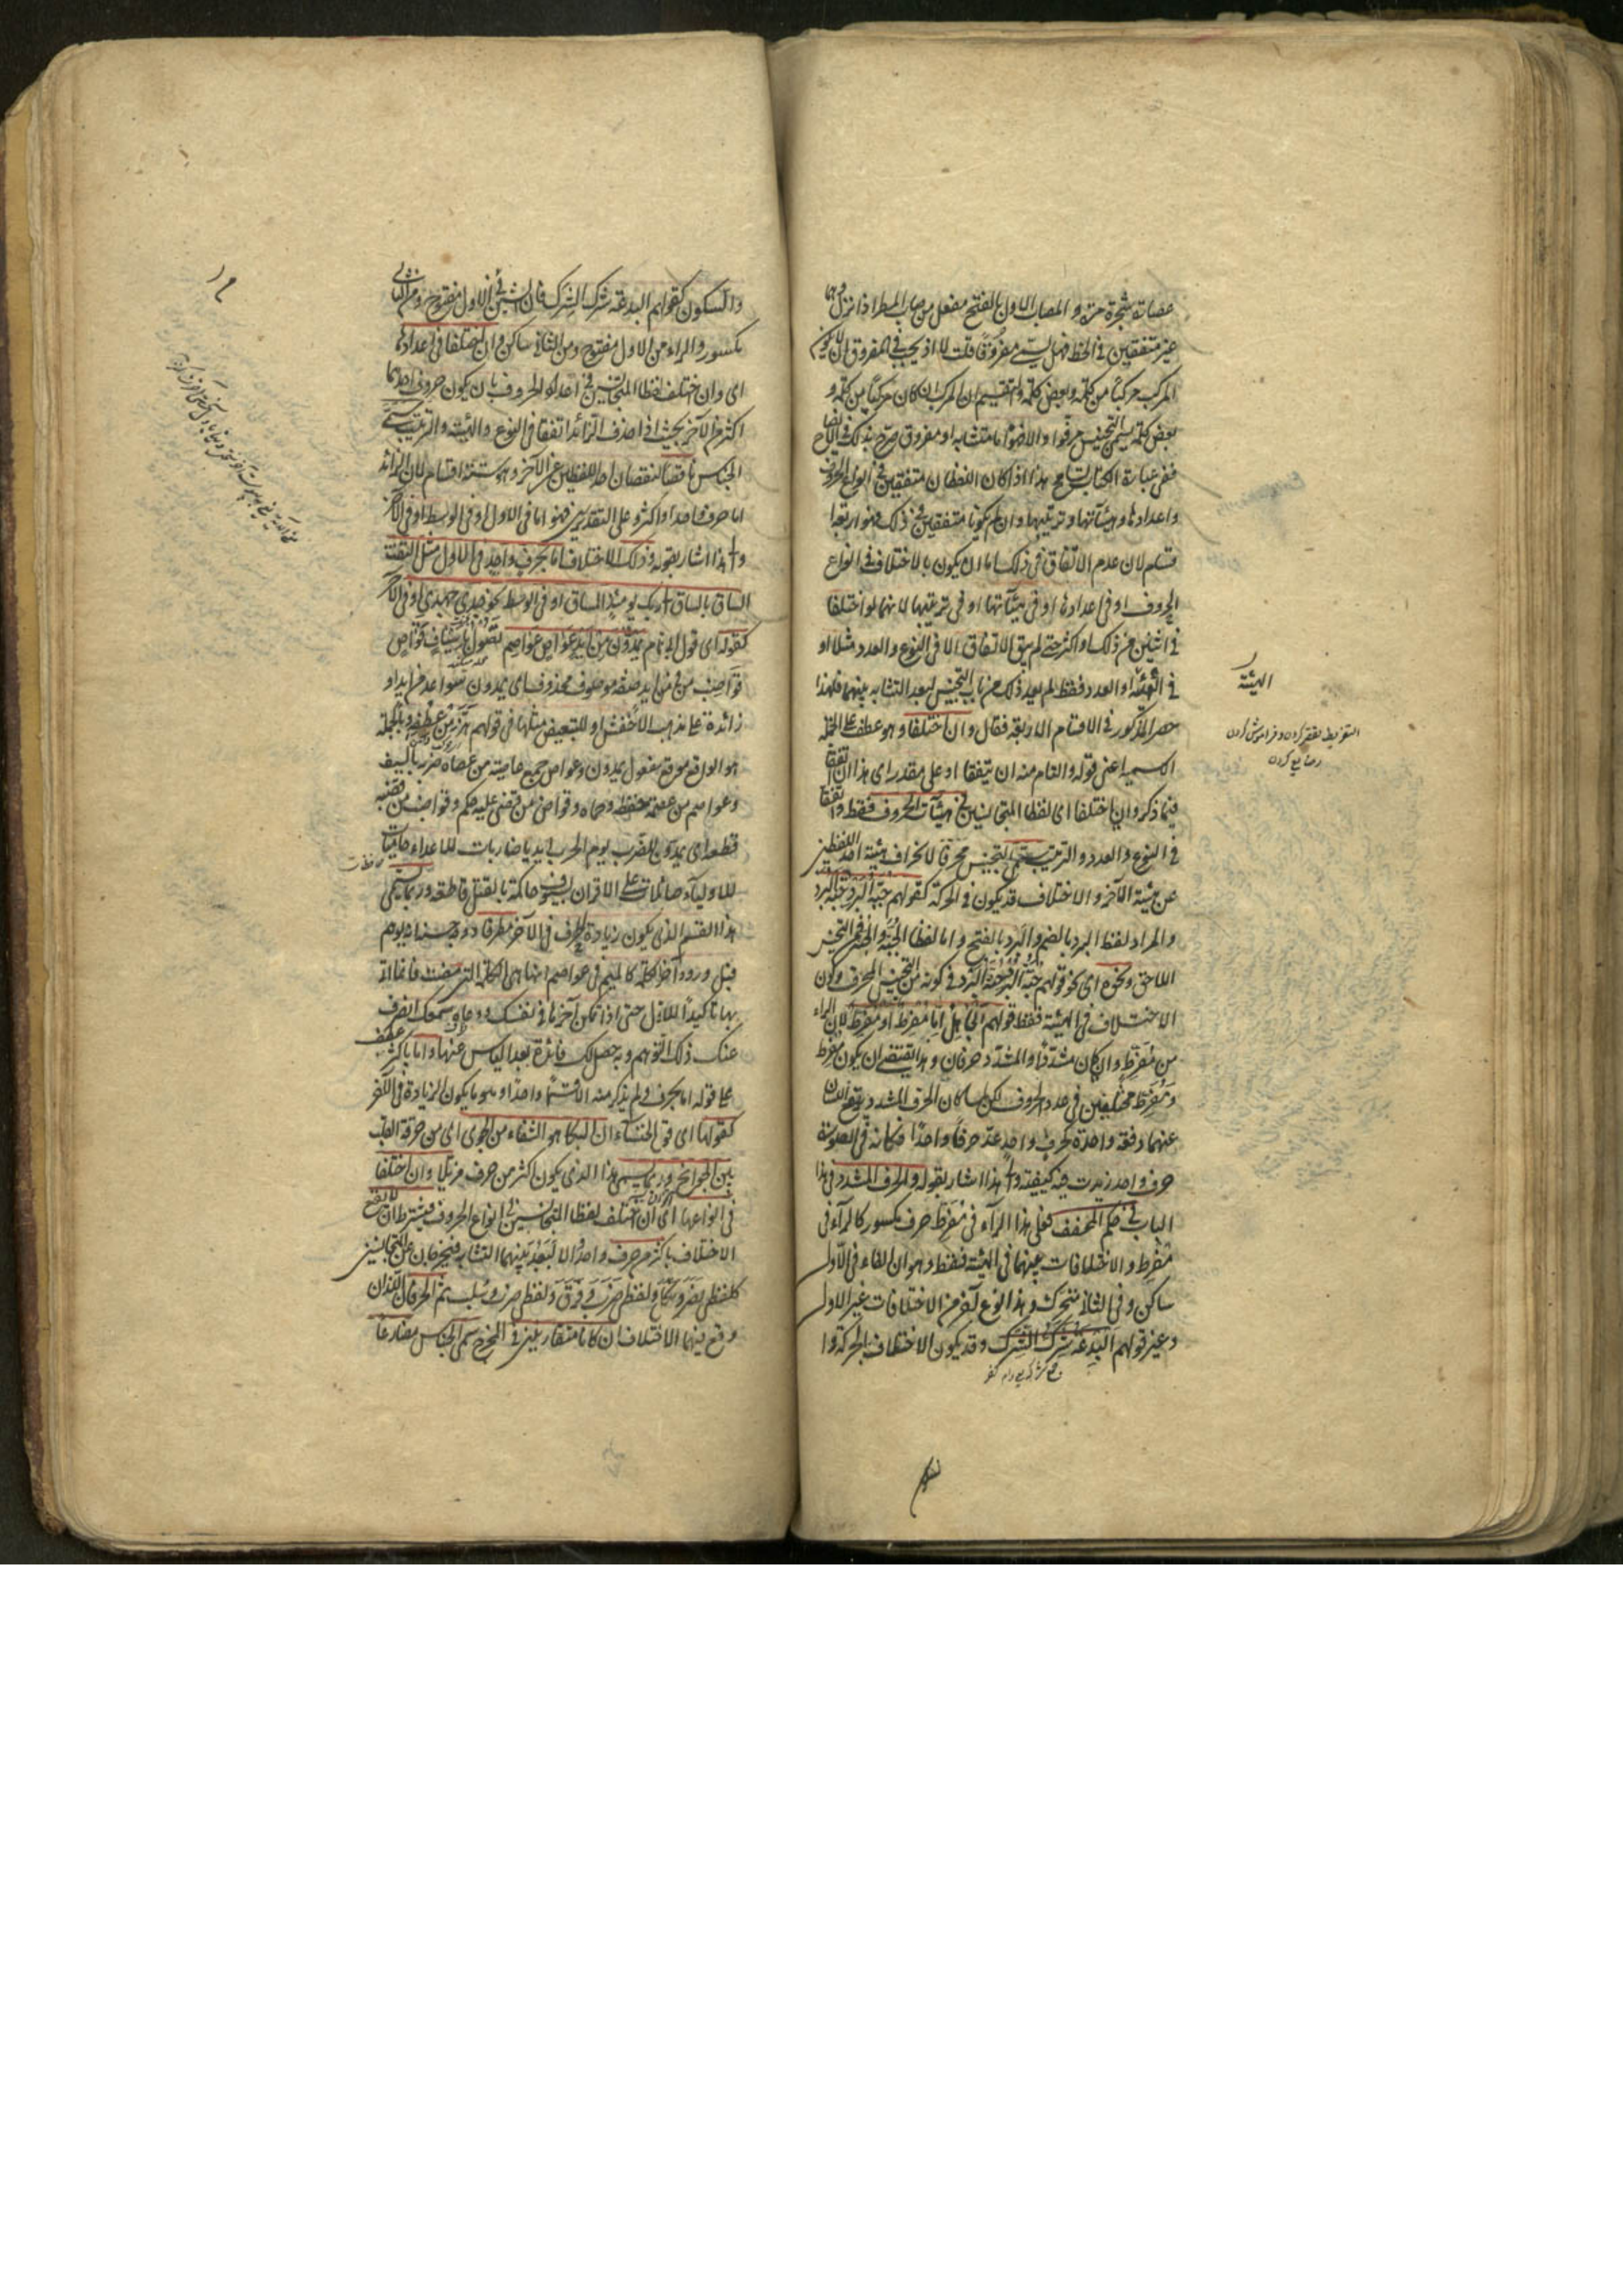 عصارة شجرة مرة و المصاب الاول بالفتح مفعل من صاب المطر اذا نزل وهما
غير متفقين في الخط فهل يسمى مفروقا قلت لا اذ يجب في المفروق ان لا يكون
المركب مركبا من كلمة و بعض كلمة و التقسيم ان المركب ان كان مركبا من كلمة و
بعض كلمة يسمى التجنيس مرفوا و الا فهو اما متشابه او مفروق صرح بذلك في الايضاح
ففي عبارة الكتاب تسامح هذا اذا كان اللفظان متفقين في انواع الحروف
و اعدادها و هيئآتها و ترتيبها و ان لم يكونا متفقين في ذلك فهو اربعة
اقسام لان عدم الاتفاق في ذلك اما ان يكون بالاختلاف في انواع
الحروف او في اعدادها او في هيئآتها او في ترتيبها لانهما لو اختلفا
في اثنين من ذلك او اكثر حتى لم يبق الاتفاق الا في النوع و العدد مثلا او
في الهيئة او العدد فقط لم يعد ذلك من باب التجنيس لبعد التشابه بينهما فلهذا
حصر المذكور في الاقسام الاربعة فقال و ان اختلفا و هو عطف على الجملة
الاسمية اعني قوله و التام منه ان يتفقا او على مقدر اى هذا ان اتفقا
فيما ذكر و ان اختلفا اى لفظا المتجانسين في هيئآت الحروف فقط و اتفقا
في النوع و العدد و الترتيب يسمى التجنيس محرفا لانحراف هيئة احد اللفظين
عن هيئة الآخر و الاختلاف قد يكون في الحركة كقولهم جبة البرد جنة البرد
و المراد لفظ البرد بالضم و البرد بالفتح و اما لفظا الجبة و الجنة فمن التجنيس
اللاحق و نحوه اى نحو قولهم جبة البرد جنة البرد في كونه من التجنيس المحرف و كون
الاختلاف في الهيئة فقط قولهم الجاهل اما مفرط او مفرط لان الراء
من مفرط و ان كان مشددا و المشدد حرفان و هذا يقتضي ان يكون مفرط
و مفرط مختلفين في عدد الحروف لكن لما كان الحرف المشدد يرتفع اللسان
عنهما دفعة واحدة كحرف واحد عد حرفا واحدا فكانه في الصورة
حرف واحد زيدت فيه كيفية و الى هذا اشار بقوله و الحرف المشدد في هذا
الباب في حكم المخفف فعلى هذا الراء في مفرط حرف مكسور كالراء في
مفرط و الاختلاف بينهما في الهيئة فقط و هو ان الفاء في الاول
ساكن و في الثاني متحرك و هذا نوع آخر من الاختلاف غير الاول
و غير قولهم البدعة شرك الشرك و قد يكون الاختلاف بالحركة و ا
الهيئة
و السكون كقولهم البدعة شرك الشرك فان الشين في الاول مفتوح و من الثاني
مكسور و الراء من الاول مفتوح و من الثاني ساكن و ان اختلفا في اعدادها
اى و ان اختلف لفظا المتجانسين في اعداد الحروف بان يكون حروف احدهما
اكثر من الآخر بحيث اذا حذف الزائد اتفقا في النوع و الهيئة و الترتيب يسمى
الجناس ناقصا لنقصان احد اللفظين عن الآخر و هو ستة اقسام لان الزائد
اما حرف واحد او اكثر و على التقديرين فهو اما في الاول او في الوسط او في الآخر
و الى هذا اشار بقوله و ذلك الاختلاف اما بحرف واحد في الاول مثل التفت
الساق بالساق الى ربك يومئذ المساق او في الوسط نحو جدي جهدي او في الآخر
كقوله اى قول ابي تمام يمدون من ايد عواص عواصم تصول باسياف قواض
قواضب من في من ايد صفة موصوف محذوف اى يمدون سواعد من ايد او
زائدة على مذهب الاخفش او للتبعيض مثلها في قولهم هز من عطفه و بالجملة
هو الواقع موقع مفعول يمدون و عواص جمع عاصية من عصاه ضربه بالسيف
و عواصم من عصمه حفظه و حماه و قواض من قضى عليه حكم و قواضب من قضبه
قطعه اى يمدون للضرب يوم الحرب ايديا ضاربات للاعداء حاميات
للاولياء صائلات على الاقران بسيوف حاكمة بالقتل قاطعة و ربما يسمى
هذا القسم الذي يكون زيادة الحرف في الآخر مطرفا و وجه حسنه انه يوهم
قبل ورود آخر الكلمة كالميم في عواصم انها هي الكلمة التي مضت و انما اتى
بها تأكيدا للاول حتى اذا تمكن آخرها في نفسك و وعاه سمعك انصرف
عنك ذلك التوهم و حصل لك فائدة بعد اليأس عنها و اما باكثر عطف
على قوله اما بحرف و لم يذكر منه الا قسما واحدا و هو ما يكون الزيادة في الآخر
كقولها اى قول الخنساء ان البكا هو الشفاء من الجوى اى من حرقة القلب
بين الجوانح و ربما يسمى هذا الذي يكون اكثر من حرف مذيلا و ان اختلفا
في انواعها اى ان اختلف لفظا المتجانسين في انواع الحروف فيشترط ان لا يقع
الاختلاف باكثر من حرف واحد و الا لبعد بينهما التشابه فيخرجان عن التجانس
كلفظي نصر و نكل و لفظي ضرب و فرق و لفظي ضرب و سلب ثم الحرفان اللذان
وقع بينهما الاختلاف ان كانا متقاربين في المخرج سمى الجناس مضارعا